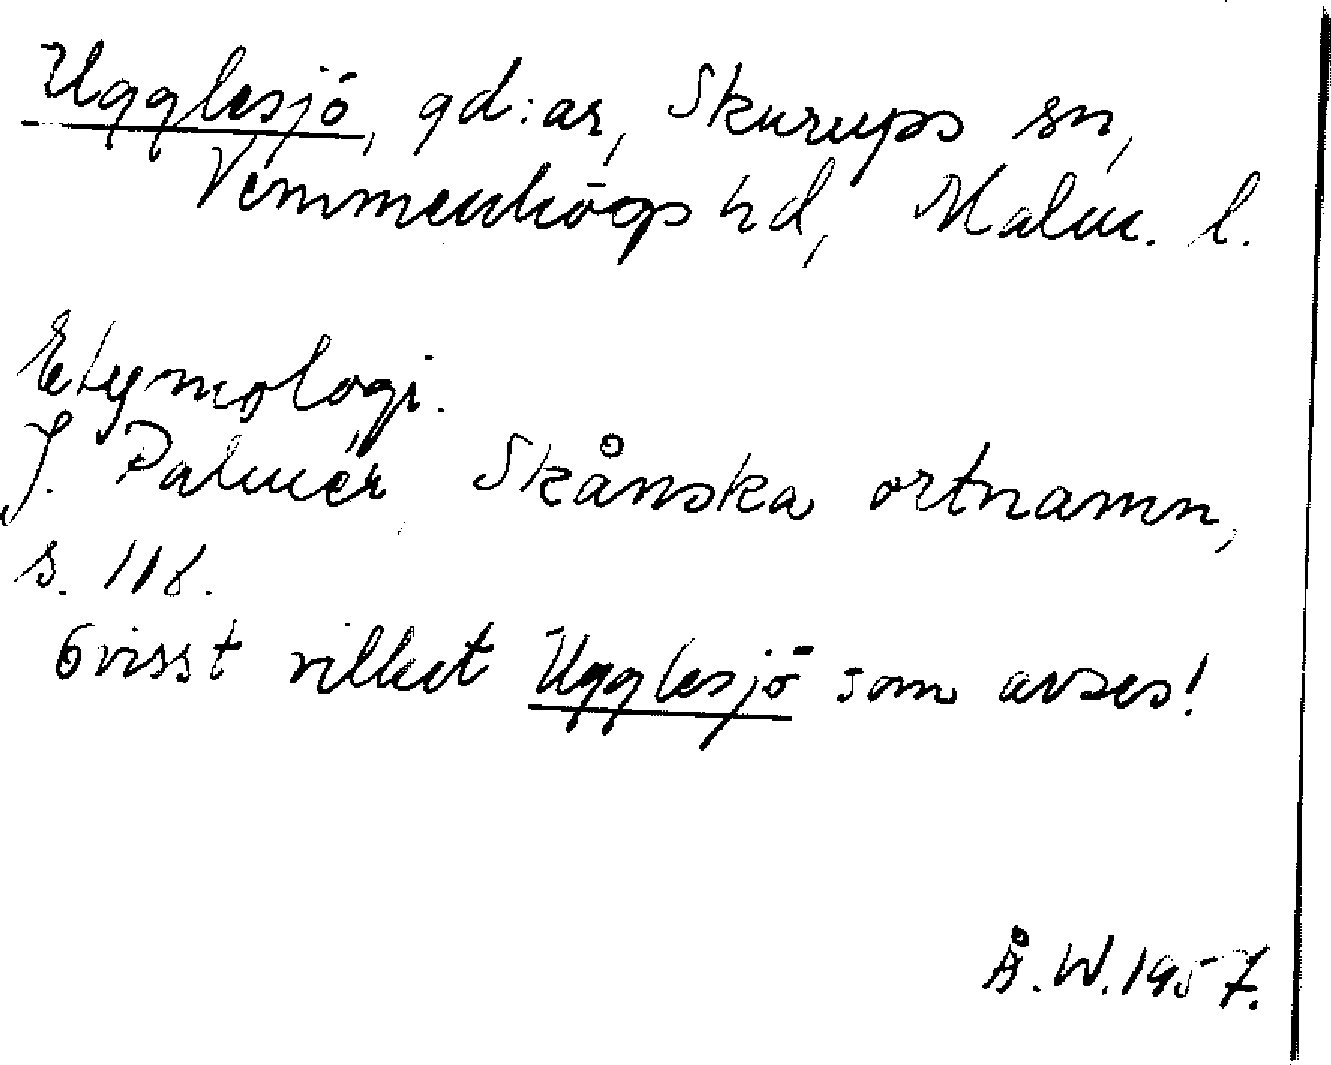 Ugglesjö, gd:ar, Skurups sn,
Vemmenhögs hd, Malm. l.
Etymologi.
J. Palmér Skånska ortnamn,
s. 118.
Ovisst vilket Ugglesjö som avses!
Å.W. 1957.